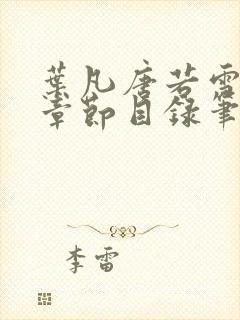 葉凡唐若雪
章節目錄筆
李雷